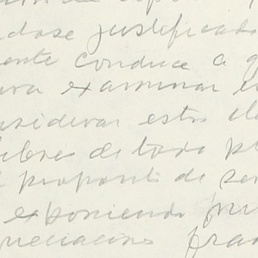 dose justificado
ente conduce a q
ara examinar e
nsiderar estos ele
libres de todo p
l proposito de ser
exponiendo
reciacion fran